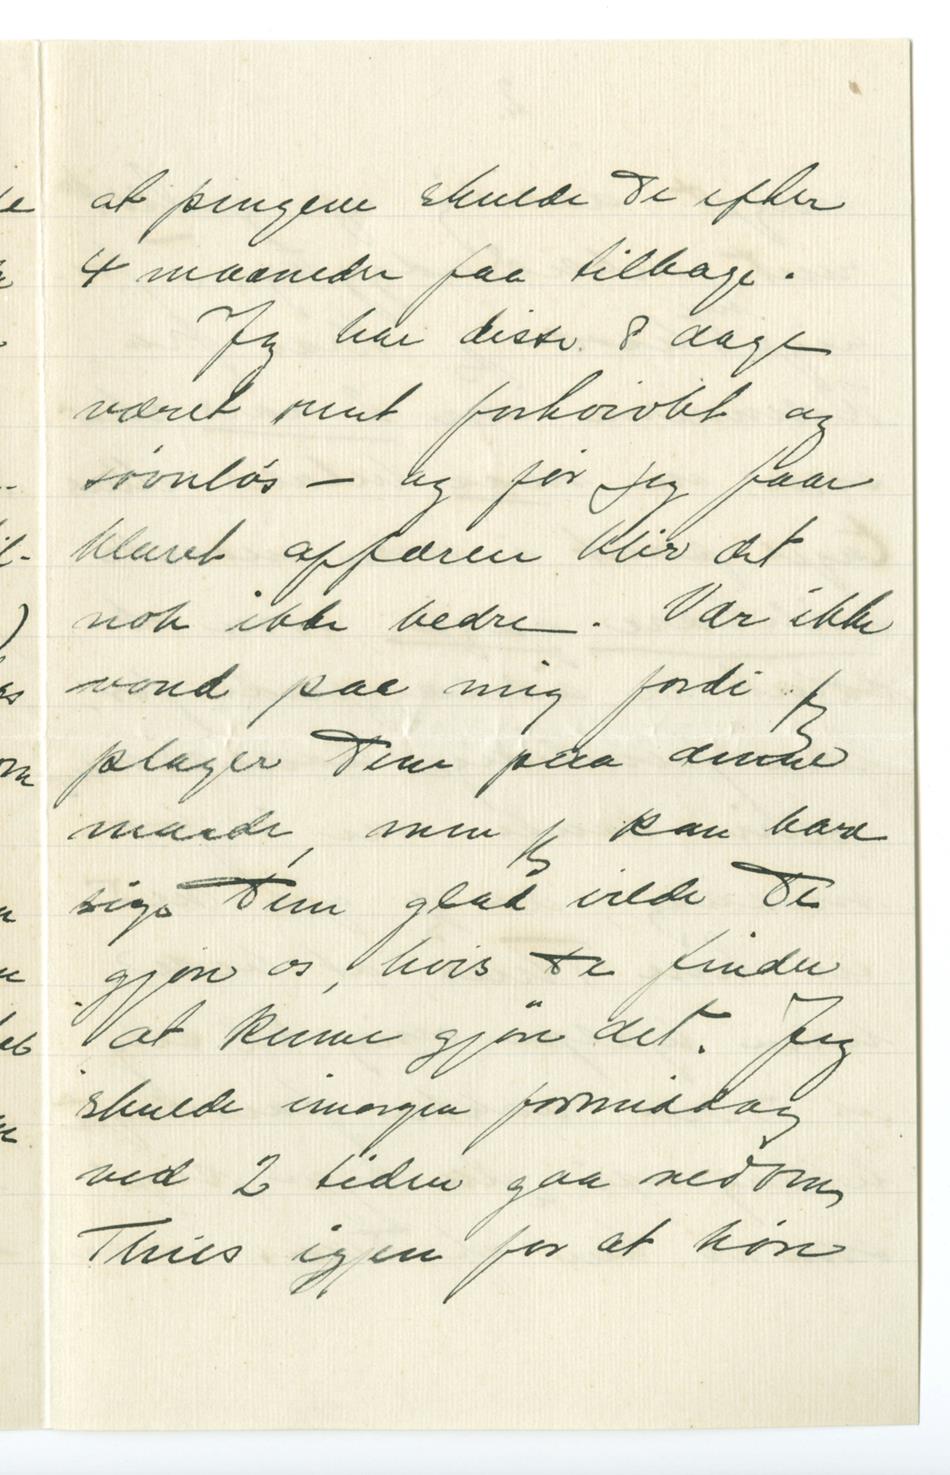 at pengene skulde De efter
4 maaneder faa tilbage.
Jeg har disse 8 dage
været rent forkvivlet og
søvnløs – og før jeg faar
klaret affæren blir det
nok ikke bedre. Vær ikke
vond paa mig fordi jeg
plager Dem paa denne
maade, men jeg kan bare
sige Dem glad vilde De
gjøre os, hvis De finder
at kunne gjøre det. Jeg
skulde imorgen formiddag
ved 2 tiden gaa nedom
Thiis igjen for at høre